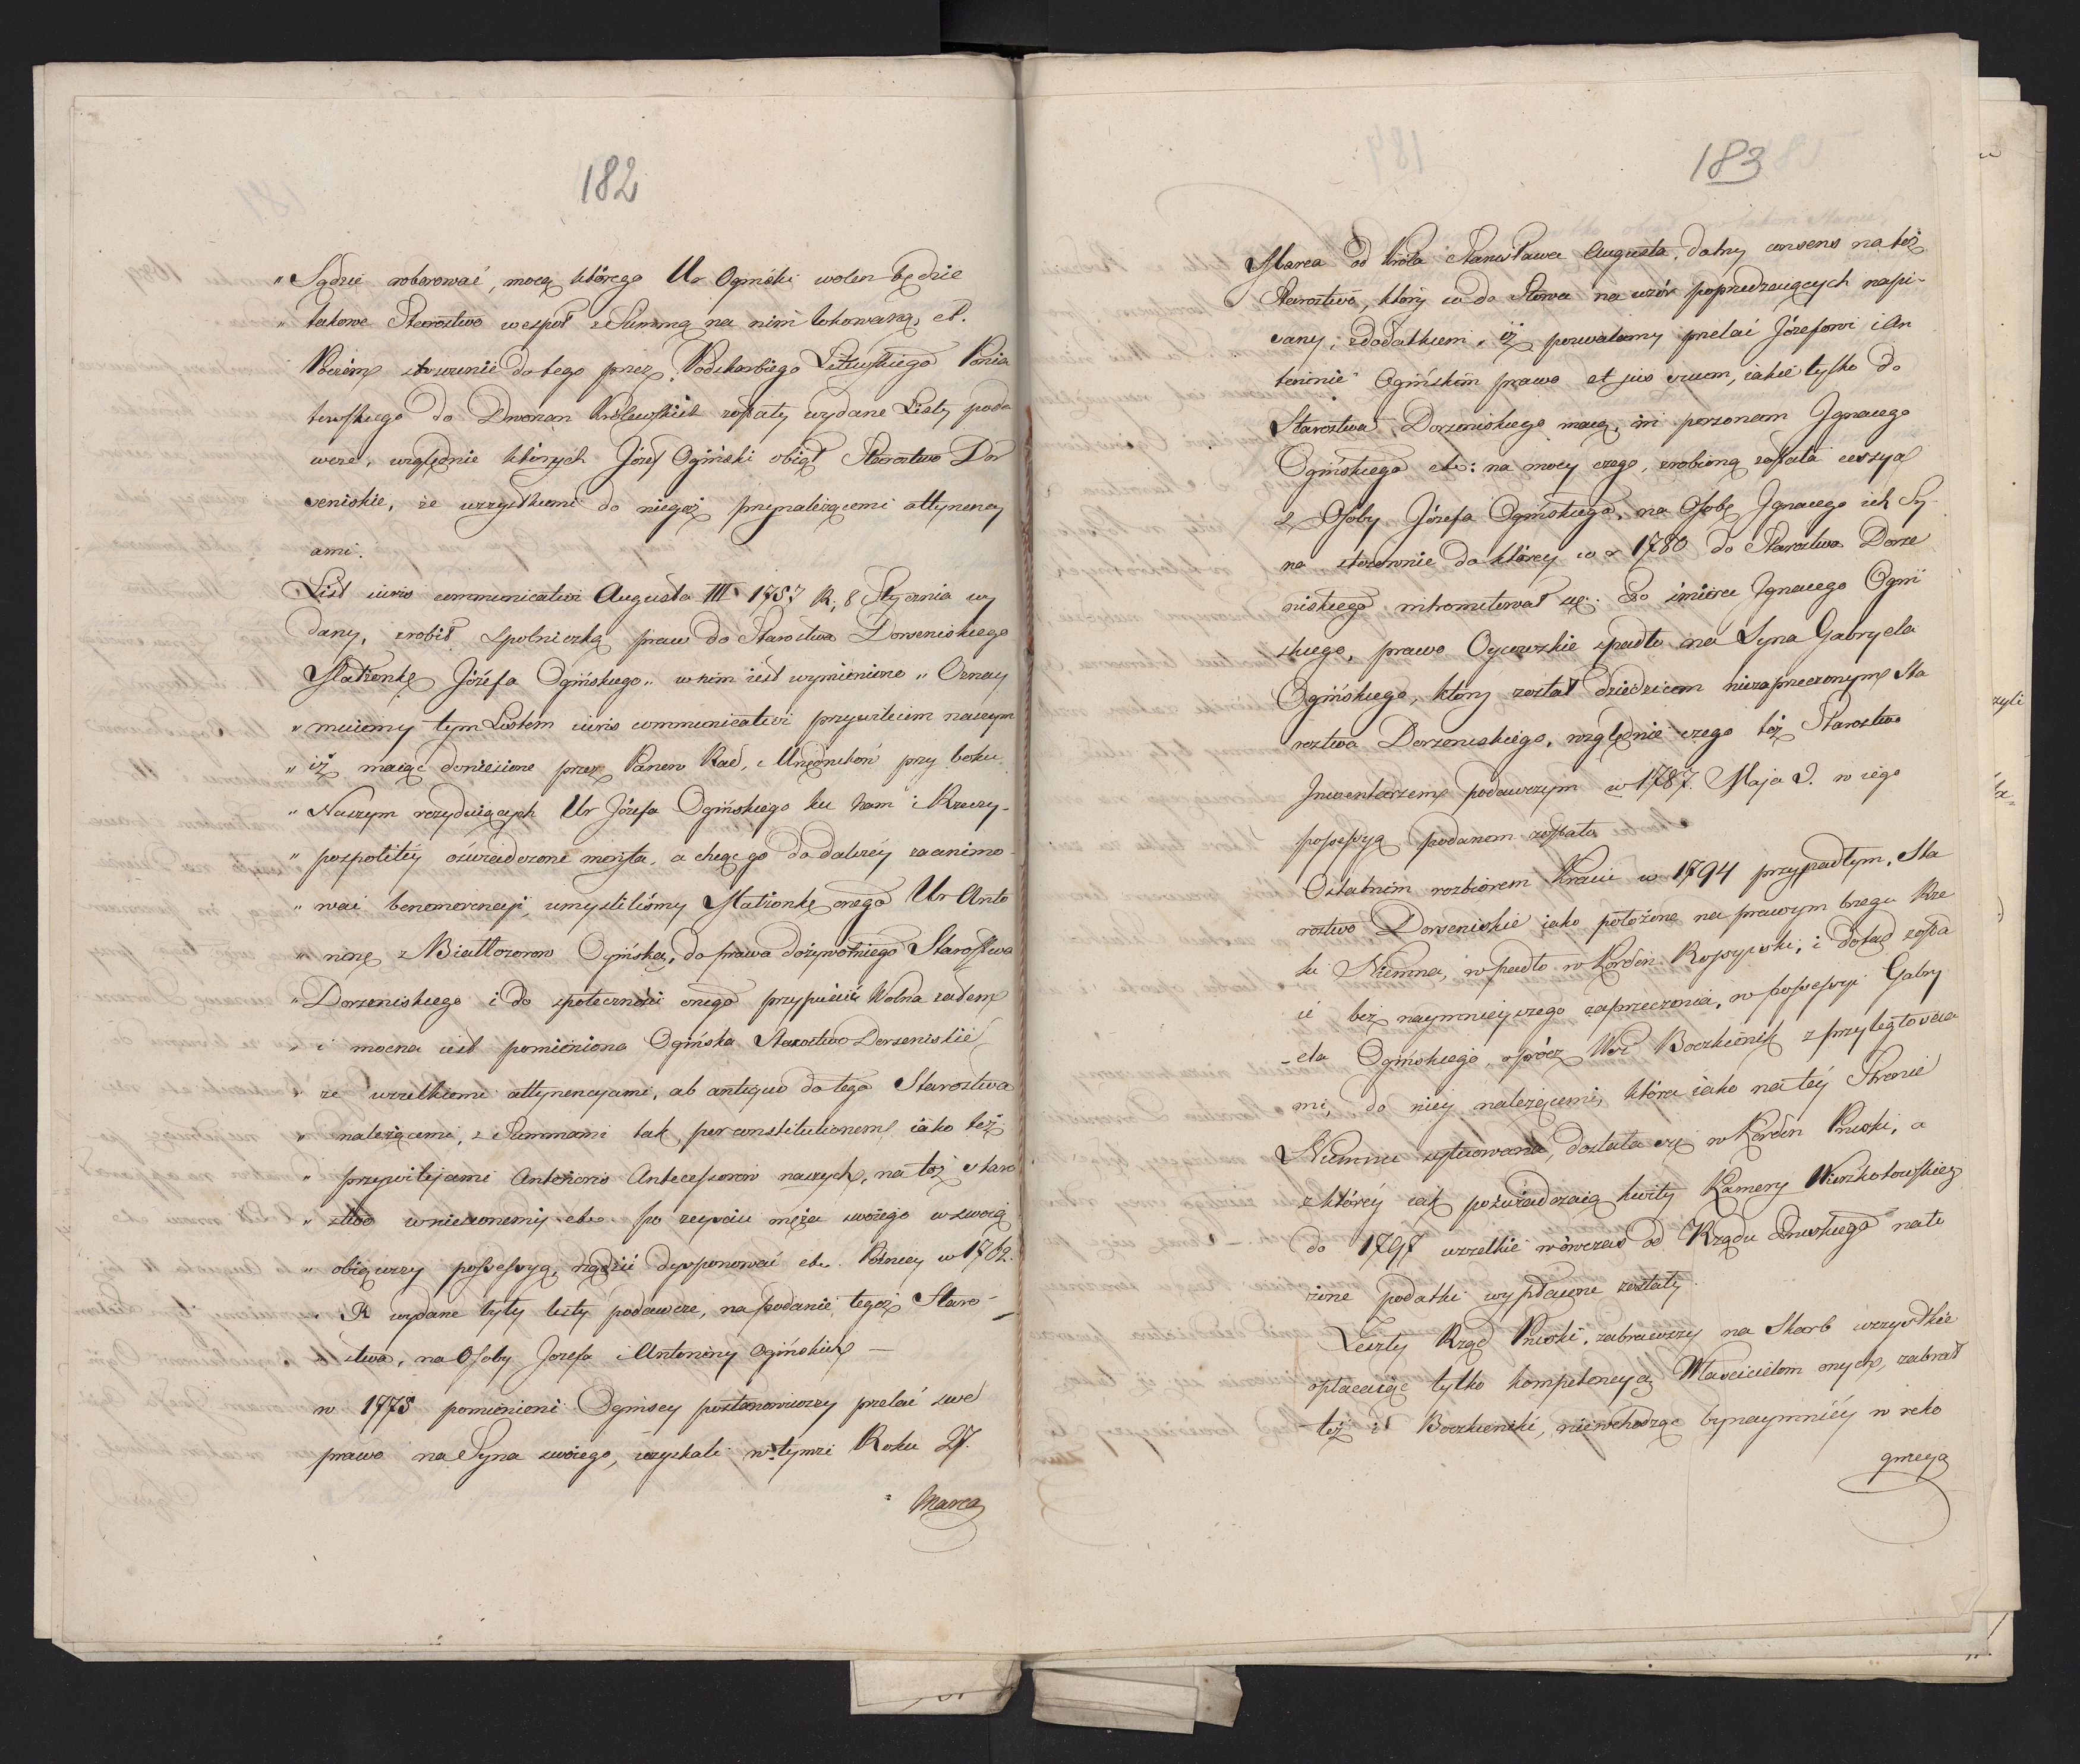 182
„ Sądzie roborować, mocą którego Ur Ogiński wolen będzie
„ takowe Starostwo wespoł z Summą na nim lokowaną, et.
Poczém stosownie do tego przez Podskarbiego Litewskiego Ponia
towskiego do Dworzan Królewskich zostały wydane Listy poda
wcze, względnie których Józef Ogiński obiął Starostwo Dor
seniskie, ze wszystkiemi do niegoż przynależącemi attynency
ami.
List iuris communicativi Augusta III 1757 R, 8 Stycznia wy
dany, zrobił spolniczką praw do Starostwa Dorseniskiego
Małżonkę Józefa Ogińskiego „ w nim iest wymieniono „ Oznay
„ muiemy tym Listem iuris communicativi przywileiem naszym
„ iż maiąc doniesione przez Panow Rad, i Urzędników przy boku
„ Naszym rezyduiących Ur Józefa Ogińskiego ku nam i Rzeczy-
„ pospolitéy oświadczone meryta, a chcąc go do dalszéy zaanimo
„ wać benemerencyi, umyśliliśmy Małżonkę onego Ur Anto
„ ninę z Białłozorow Ogińską, do prawa dożywotniego Starostwa
„ Dorzeniskiego i do społeczności onego przypuścić Wolna zatem
„ i mocna iest pomieniona Ogińska Starostwo Dorseniskie
„ ze wszelkiemi attynencyami, ab antiquo do tego Starostwa
„ należącemi, z Summami tak per constitutionem iako też
„ przywilejami Antecessorow naszych, na toż staro
„ stwo wniesionemi, etc po zeyściu męża swoiego w swoią
„ obiąwszy possessyą, rządzić dysponować etc. Pózniey w 1762.
R wydane były listy podawcze, na podanie tegoż Staro-
stwa, na Osoby Jozefa i Antoniny Ogińskich —
w 1775 pomienieni Ogińscy postanowiwszy przelać swe
prawo na Syna swoiego, uzyskali w tymże Roku 27.
Marca
183
Marca od Króla Stanisława Augusta, datny consens na toż
Starostwo, który co do słowa na wzór poprzedzaiących napi-
sany, z dodatkiem, iż pozwalamy przelać Józefowi i An
toninie Ogińskim prawo et jus suum, iakie tylko do
Starostwa Dorzeniskiego maią, in personam Jgnacego
Ogińskiego etc: na mocy czego, zrobioną została cessya
z Osoby Józefa Ogińskiego, na Osobę Jgnacego ich Sy-
na stosownie do którey w r 1780 do Starostwa Dorze
niskiego intromitował się. Po śmierci Jgnacego Ogiń
skiego, prawo Oycowskie spadło na Syna Gabryela
Ogińskiego, który został dziedzicem niezaprzeczonym Sta
rostwa Dorzeniskiego, względnie czego też Starostwo
Jnwentarzem podawczym w 1787. Maja 2. w iego
possessyą podanem zostało
Ostatnim rozbiorem Kraiu w 1794 przypadłym, Sta
rostwo Dorseniskie iako położone na prawym brzegu Rze
ki Niemna, wpadło w Kordon Rossyiski, i dotąd zosta
ie bez naymnieyszego zaprzeczenia, w possessyi Gabry
-ela Ogińskiego, oprócz Wsi Boczkienik z przyległościa
mi, do niey należącemi, która iako na téy Stronie
Niemna sytuowana, dostała się w Kordon Pruski, a
z któréy iak poświadczaią kwity Kamery Wierzbołowskiey
do 1797 wszelkie wówczas od Rządu Pruskiego nało
żone podatki wypłacone zostały.
Zeszły Rząd Pruski, zabrawszy na Skarb wszystkie
opłacaiąc tylko kompetencyą Właścicielom onych, zabrał
też i Boczkieniki, niewchodząc bynaymniéy w reko
gnicyą